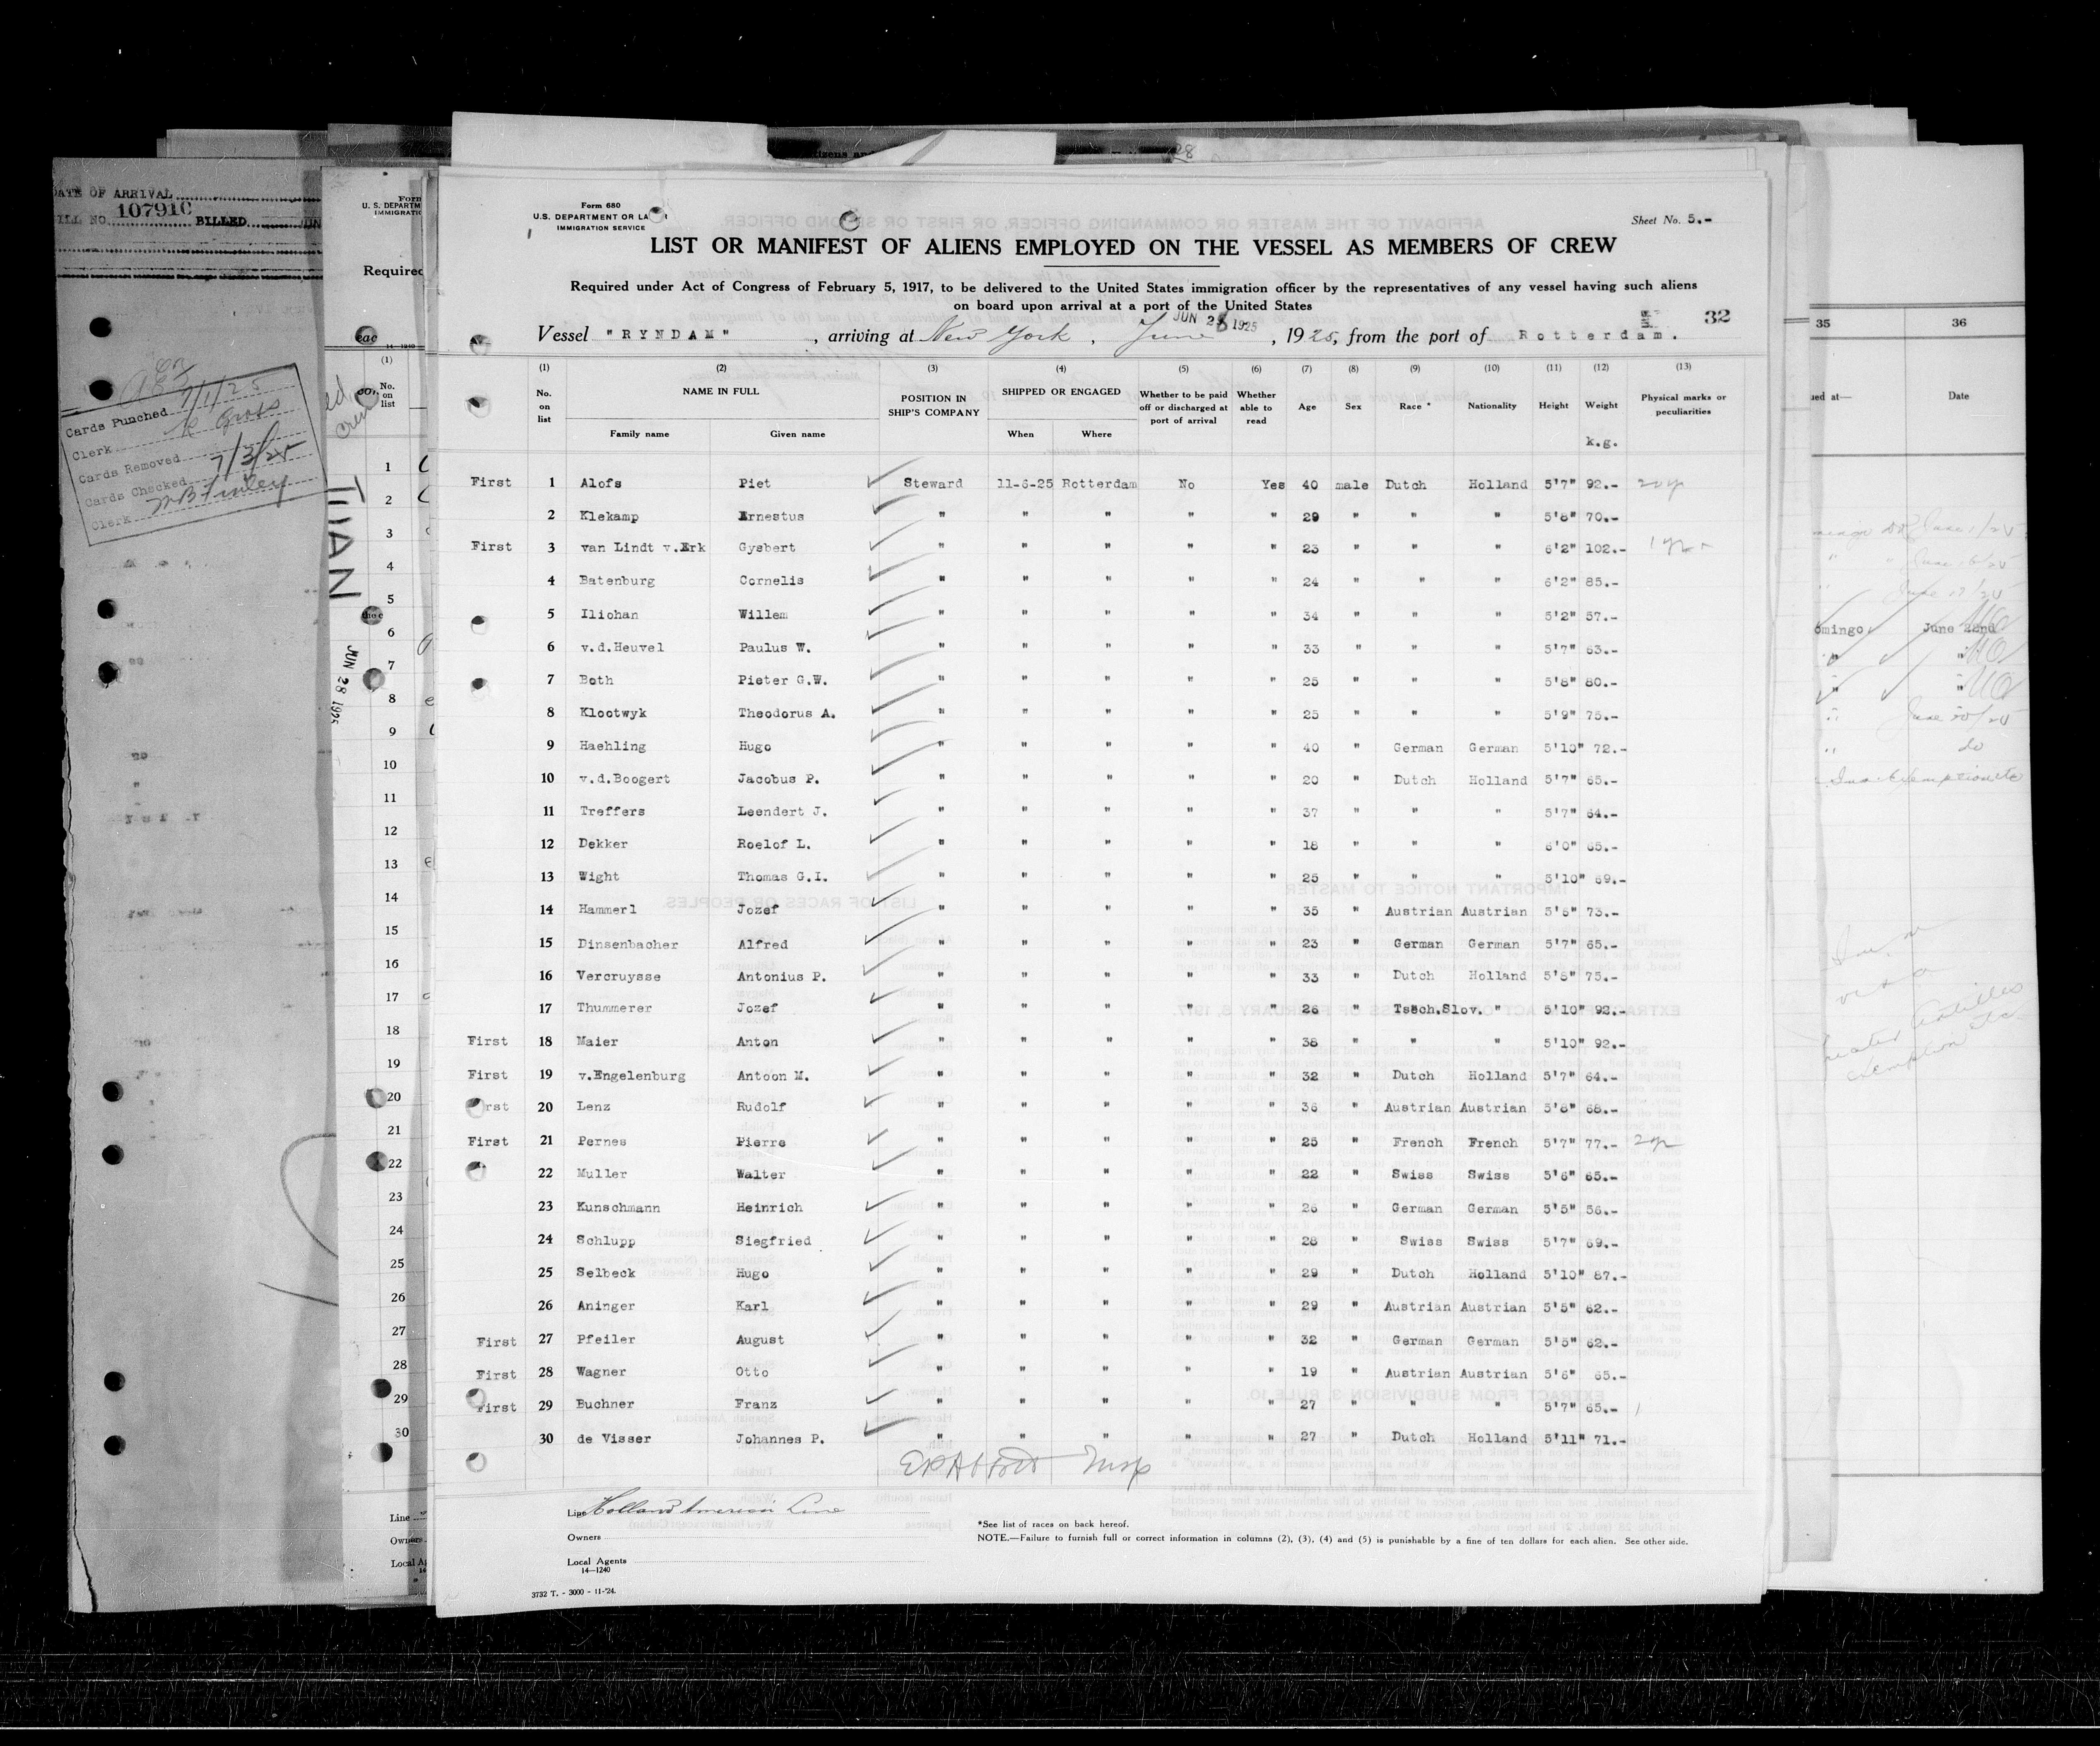 DATE OF ARRIVAL
BILL NO. 107910 BILLED JUN
Cards Punched 7/1/25
Clerk
Cards Removed
Cards Checked 7/3/25
Clerk
Form
U. S. DEPARTM
IMMIGRATIO
Required
(1)
No.
on
list
JUN 28 1925
1
2
3
4
5
6
7
8
9
10
11
12
13
14
15
16
17
18
19
20
21
22
23
24
25
26
27
28
29
30
Line
Owners
Local A
Form 680
U. S. DEPARTMENT OF LA
IMMIGRATION SERVICE
Sheet No. 5.-
LIST OR MANIFEST OF ALIENS EMPLOYED ON THE VESSEL AS MEMBERS OF CREW
Required under Act of Congress of February 5, 1917, to be delivered to the United States immigration officer by the representatives of any vessel having such aliens
on board upon arrival at a port of the United States
JUN 28 1925
32
Vessel "RYNDAM", arriving at New York, June, 1925, from the port of Rotterdam.
(1) (2) (3) (4) (5) (6) (7) (8) (9) (10) (11) (12) (13)
No. on list NAME IN FULL Family name Given name POSITION IN SHIP'S COMPANY SHIPPED OR ENGAGED When Where Whether to be paid off or discharged at port of arrival Whether able to read Age Sex Race * Nationality Height Weight k.g. Physical marks or peculiarities
First 1 Alofs Piet Steward 11-6-25 Rotterdam No Yes 40 male Dutch Holland 5'7" 92.-
2 Klekamp Ernestus " " " " " 29 " " " 5'8" 70.-
First 3 van Lindt v.Erk Gysbert " " " " " 23 " " " 6'2" 102.-
4 Batenburg Cornelis " " " " " 24 " " " 6'2" 85.-
5 Iliohan Willem " " " " " 34 " " " 5'2" 57.-
6 v.d.Heuvel Paulus W. " " " " " 33 " " " 5'7" 63.-
7 Both Pieter G.W. " " " " " 25 " " " 5'8" 80.-
8 Klootwyk Theodorus A. " " " " " 25 " " " 5'9" 75.-
9 Haehling Hugo " " " " " 40 " German German 5'10" 72.-
10 v.d.Boogert Jacobus P. " " " " " 20 " Dutch Holland 5'7" 65.-
11 Treffers Leendert J. " " " " " 37 " " " 5'7" 64.-
12 Dekker Roelof L. " " " " " 18 " " " 6'0" 65.-
13 Wight Thomas G.I. " " " " " 25 " " " 5'10" 69.-
14 Hammerl Jozef " " " " " 35 " Austrian Austrian 5'6" 73.-
15 Dinsenbacher Alfred " " " " " 23 " German German 5'7" 65.-
16 Vercruysse Antonius P. " " " " " 33 " Dutch Holland 5'8" 75.-
17 Thummerer Jozef " " " " " 26 " Tsech.Slov. " 5'10" 92.-
First 18 Maier Anton " " " " " 38 " " " 5'10" 92.-
First 19 v.Engelenburg Antoon M. " " " " " 32 " Dutch Holland 5'7" 64.-
rst 20 Lenz Rudolf " " " " " 36 " Austrian Austrian 5'8" 68.-
First 21 Pernes Pierre " " " " " 25 " French French 5'7" 77.-
22 Muller Walter " " " " " 22 " Swiss Swiss 5'6" 65.-
23 Kunschmann Heinrich " " " " " 26 " German German 5'5" 56.-
24 Schlupp Siegfried " " " " " 28 " Swiss Swiss 5'7" 69.-
25 Selbeck Hugo " " " " " 29 " Dutch Holland 5'10" 87.-
26 Aninger Karl " " " " " 29 " Austrian Austrian 5'5" 62.-
First 27 Pfeiler August " " " " " 32 " German German 5'5" 62.-
First 28 Wagner Otto " " " " " 19 " Austrian Austrian 5'6" 65.-
First 29 Buchner Franz " " " " " 27 " " " 5'7" 65.-
30 de Visser Johannes P. " " " " " 27 " Dutch Holland 5'11" 71.-
Line Holland America Line
Owners
Local Agents
14—1240
3732 T. - 3000 - 11-'24.
*See list of races on back hereof.
NOTE.—Failure to furnish full or correct information in columns (2), (3), (4) and (5) is punishable by a fine of ten dollars for each alien. See other side.
35 36
ued at— Date
omingo June 22nd
do